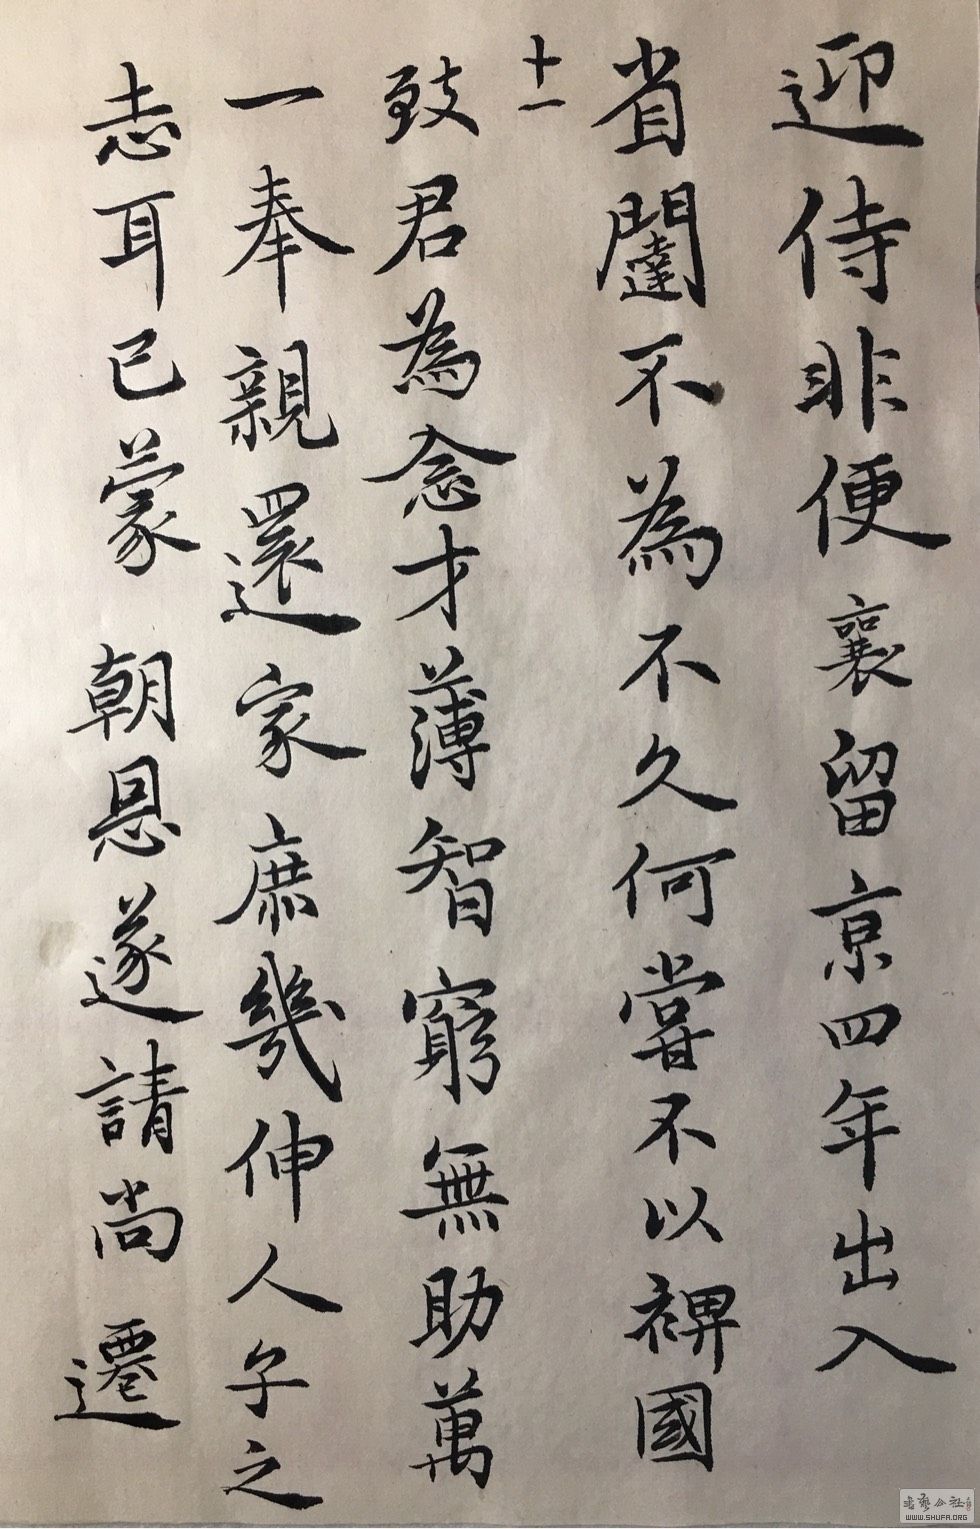 迎侍非便襄留京四年出入
省闥不為不久何嘗不以裨國
十一
致君為念才薄智窮無助萬
一奉親還家庶幾伸人子之
志耳已蒙 朝恩遂請尚遷
書藝公社
WWW.SHUFA.ORG